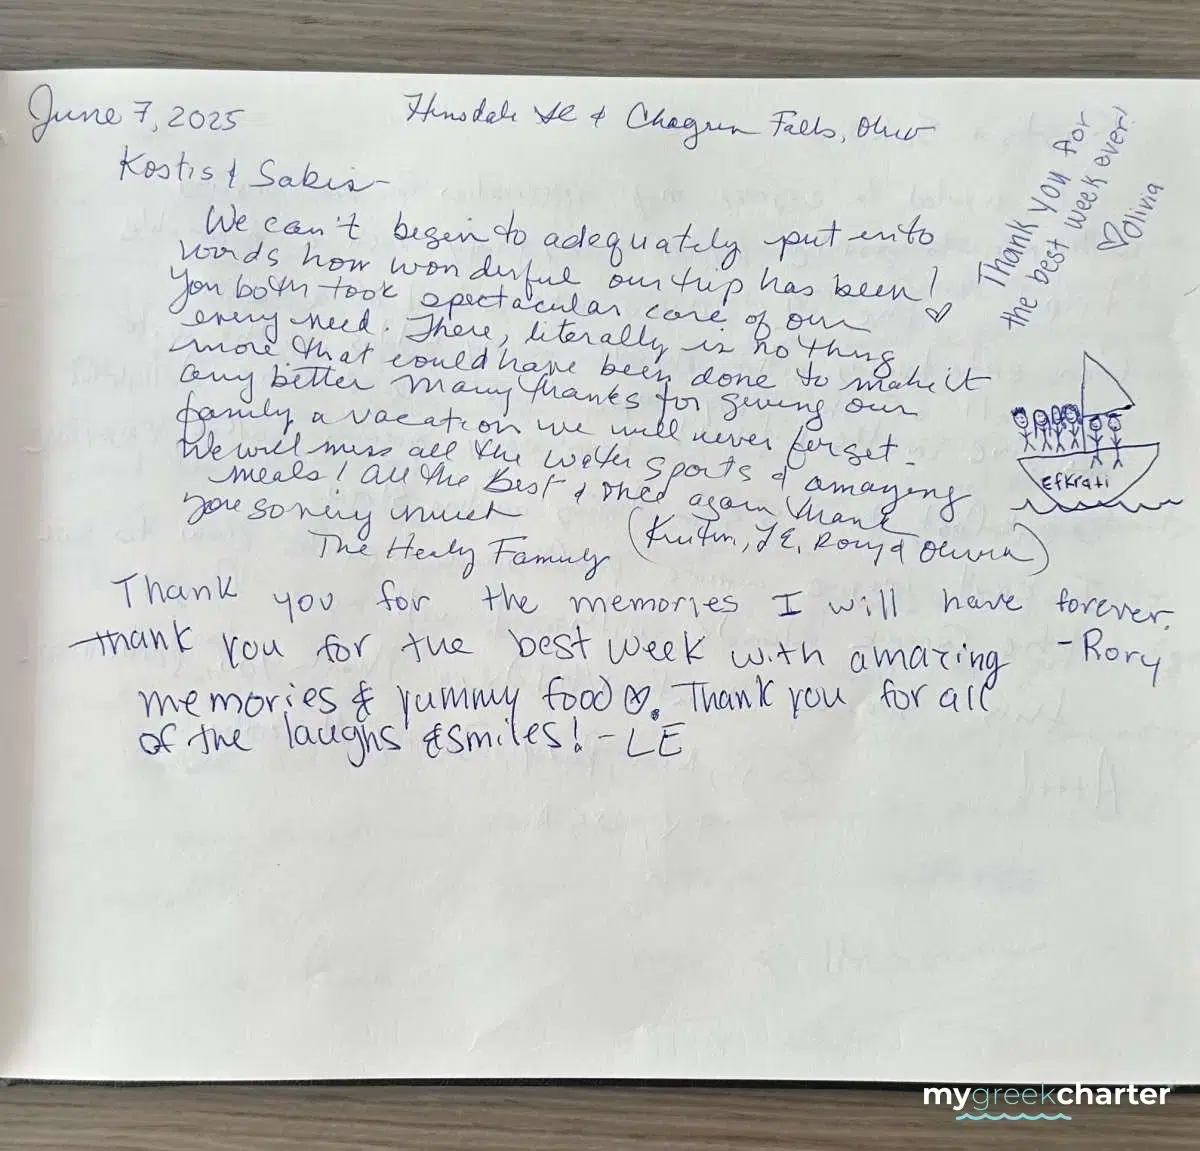 June 7, 2025
Hinsdale IL & Chagrin Falls, Ohio
Kostis & Sakis -
We can't begin to adequately put into
words how wonderful our trip has been!
You both took spectacular care of our
every need. There, literally is nothing
more that could have been done to make it
any better Many thanks for giving our
family a vacation we will never forget.
We will miss all the water sports & amazing
meals! All the Best & once again thank
you so very much
The Healy Family
(Kristin, LE, Rory & Olivia)
Thank you for
the best week ever!
♡ Olivia
Efkrati
Thank you for the memories I will have forever.
- Rory
Thank you for the best week with amazing
memories & yummy food ♡. Thank you for all
of the laughs & smiles! - LE
mygreekcharter